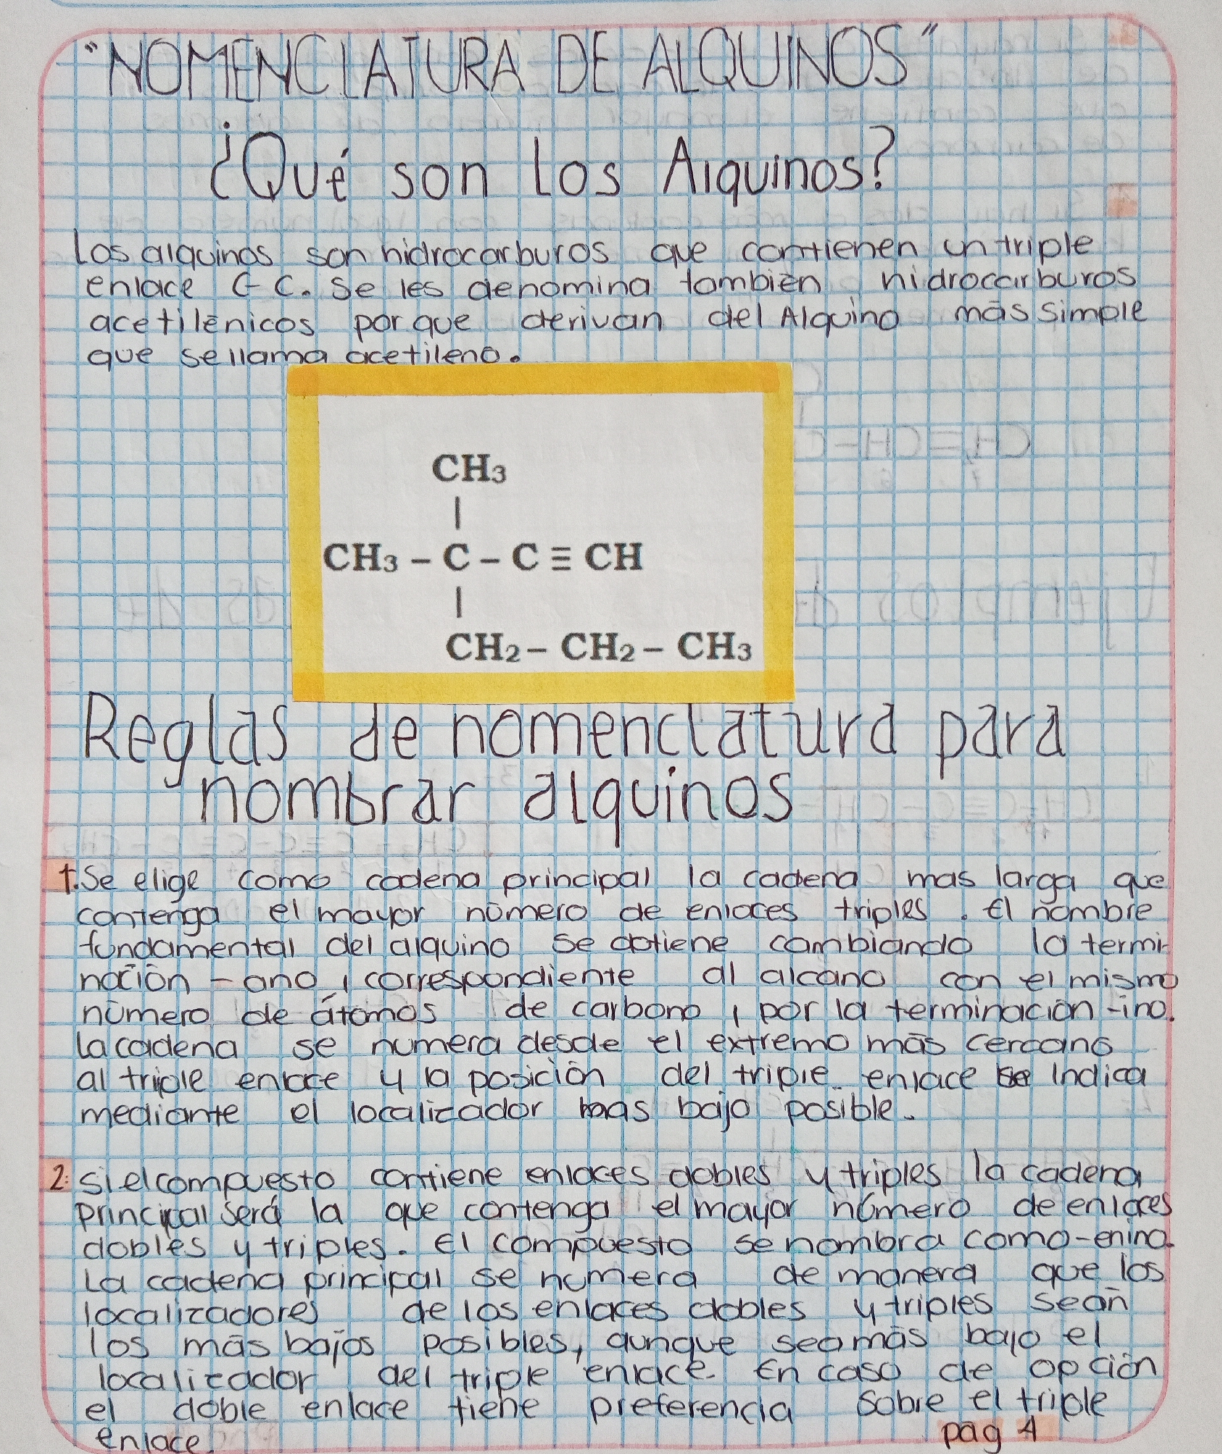 "NOMENCLATURA DE ALQUINOS"
¿Qué son Los Alquinos?
Los alquinos son hidrocarburos que contienen un triple
enlace C-C. Se les denomina tambien hidrocarburos
acetilénicos porque derivan del Alquino más simple
que se llama acetileno.
CH₃
|
CH₃ – C – C ≡ CH
|
CH₂ – CH₂ – CH₃
Reglas de nomenclatura para
nombrar alquinos
1. Se elige como cadena principal la cadena mas larga que
contenga el mayor número de enlaces triples. El nombre
fundamental del alquino se obtiene cambiando la termi
nación -ano, correspondiente al alcano con el mismo
número de átomos de carbono, por la terminación -ino.
La cadena se numera desde el extremo más cercano
al triple enlace y la posición del triple enlace se indica
mediante el localizador mas bajo posible.
2: si el compuesto contiene enlaces dobles y triples la cadena
principal será la que contenga el mayor número de enlaces
dobles y triples. El compuesto se nombra como -enino.
La cadena principal se numera de manera que los
localizadores de los enlaces dobles y triples sean
los más bajos posibles, aunque sea más bajo el
localizador del triple enlace. En caso de opción
el doble enlace tiene preferencia sobre el triple
enlace.
pag 4